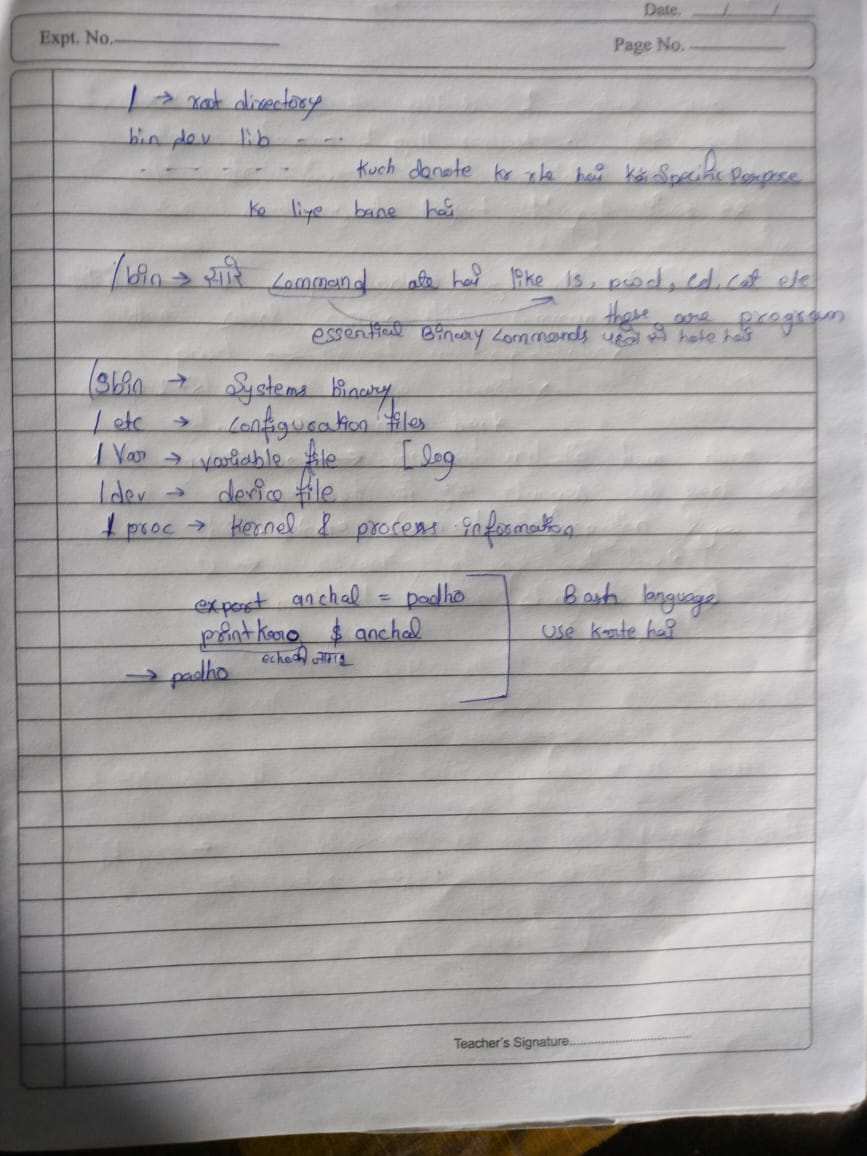 Date. __/__/__
Expt. No.
Page No.
/ → root directory
bin dev lib - - -
- - - - - - Kuch denote kr rhe hai Specific Purpose
ke liye bane hai
/bin → सारे Command ate hai like ls, pwd, cd, cat etc
these are program
essential Binary commands यही से hote hai
/Sbin → Systems binary
/ etc → configuration files
/ Var → variable file [log
/dev → device file
/ proc → kernel & process information
export anchal = padho
Bash language
print karo $ anchal
use karte hai
echo की जगह
→ padho
Teacher's Signature